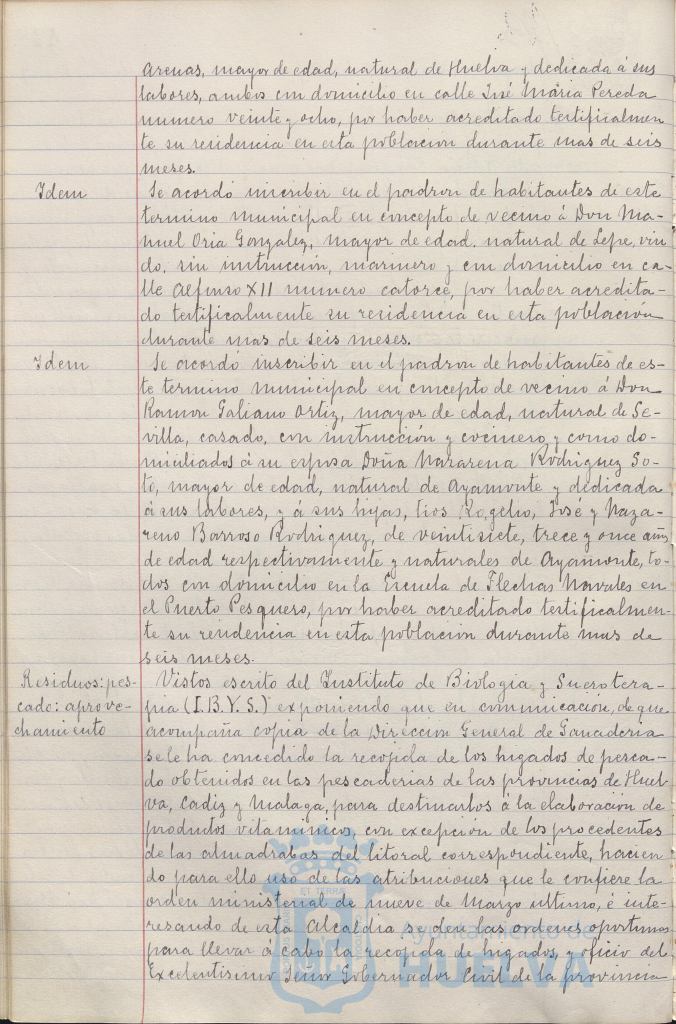 Arenas, mayor de edad, natural de Huelva y dedicada á sus
labores, ambos con domicilio en calle José Maria Pereda
numero veinte y ocho, por haber acreditado testificalmen
te su residencia en esta poblacion durante mas de seis
meses.
Idem
Se acordó inscribir en el padron de habitantes de este
termino municipal en concepto de vecino á Don Ma-
nuel Oria Gonzalez, mayor de edad, natural de Lepe, viu
do, sin instrucción, marinero y con domicilio en ca-
lle Alfonso XII numero catorce, por haber acredita-
do testificalmente su residencia en esta poblacion
durante mas de seis meses.
Idem
Se acordó inscribir en el padron de habitantes de es-
te termino municipal en concepto de vecino á Don
Ramon Galiano Ortiz, mayor de edad, natural de Se-
villa, casado, con instrucción y cocinero y como do-
miciliados á su esposa Doña Nazarena Rodriguez So-
to, mayor de edad, natural de Ayamonte y dedicada
á sus labores, y á sus hijas, Rogelio, José y Naza-
reno Barroso Rodriguez, de veintisiete, trece y once años
de edad respectivamente y naturales de Ayamonte, to-
dos con domicilio en la Escuela de Flechas Navales en
el Puerto Pesquero, por haber acreditado testificalmen-
te su residencia en esta poblacion durante mas de
seis meses.
Residuos: pes-
cado: aprove-
chamiento
Vistos escrito del Instituto de Biologia y Suerotera-
pia (I.B.Y.S.) exponiendo que en comunicación, de que
acompaña copia de la Direccion General de Ganaderia
se le ha concedido la recojida de los higados de pesca-
do obtenidos en las pescaderias de las provincias de Huel
va, Cadiz y Malaga, para destinarlos á la elaboracion de
productos vitaminicos, con excepción de los procedentes
de las almadrabas del litoral correspondiente, hacien
do para ello uso de las atribuciones que le confiere la
orden ministerial de nueve de Marzo ultimo, é inte-
resando de esta Alcaldia se den las ordenes oportunas
para llevar á cabo la recojida de higados, y oficio del
Excelentisimo Señor Gobernador Civil de la provincia
ET TERRA
Ayuntamiento de
HUELVA